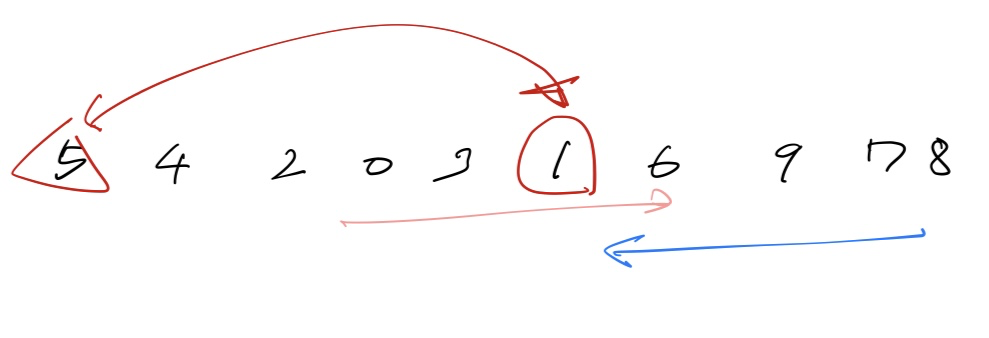 5 4 2 0 3 1 6 9 7 8